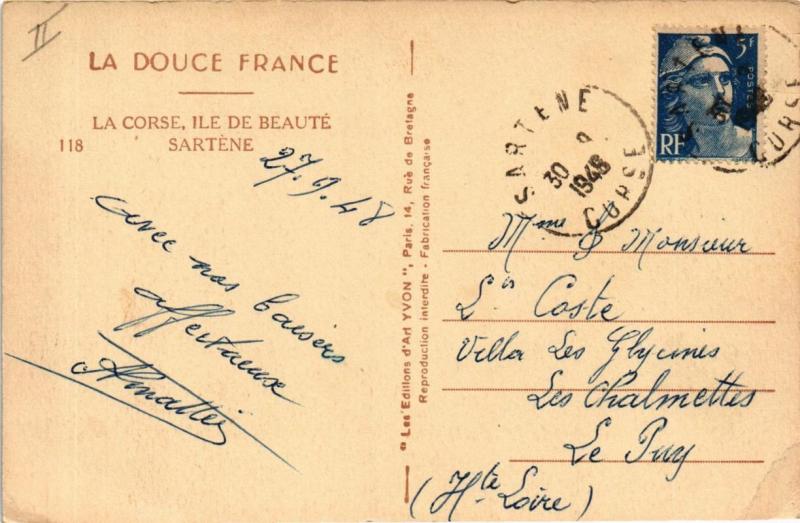 II
LA DOUCE FRANCE
LA CORSE, ILE DE BEAUTÉ
118 SARTÈNE
27.9.48
avec nos baisers
affectueux
AMattei
" Les Editions d'Art YVON ", Paris, 14, Rue de Bretagne
Reproduction interdite - Fabrication française
5F
POSTES
RF
SARTENE
30 9
1948
CORSE
SARTENE
CORSE
Mme & Monsieur
Ls Coste
Villa Les Glycines
Les Chalmettes
Le Puy
(Hte Loire)